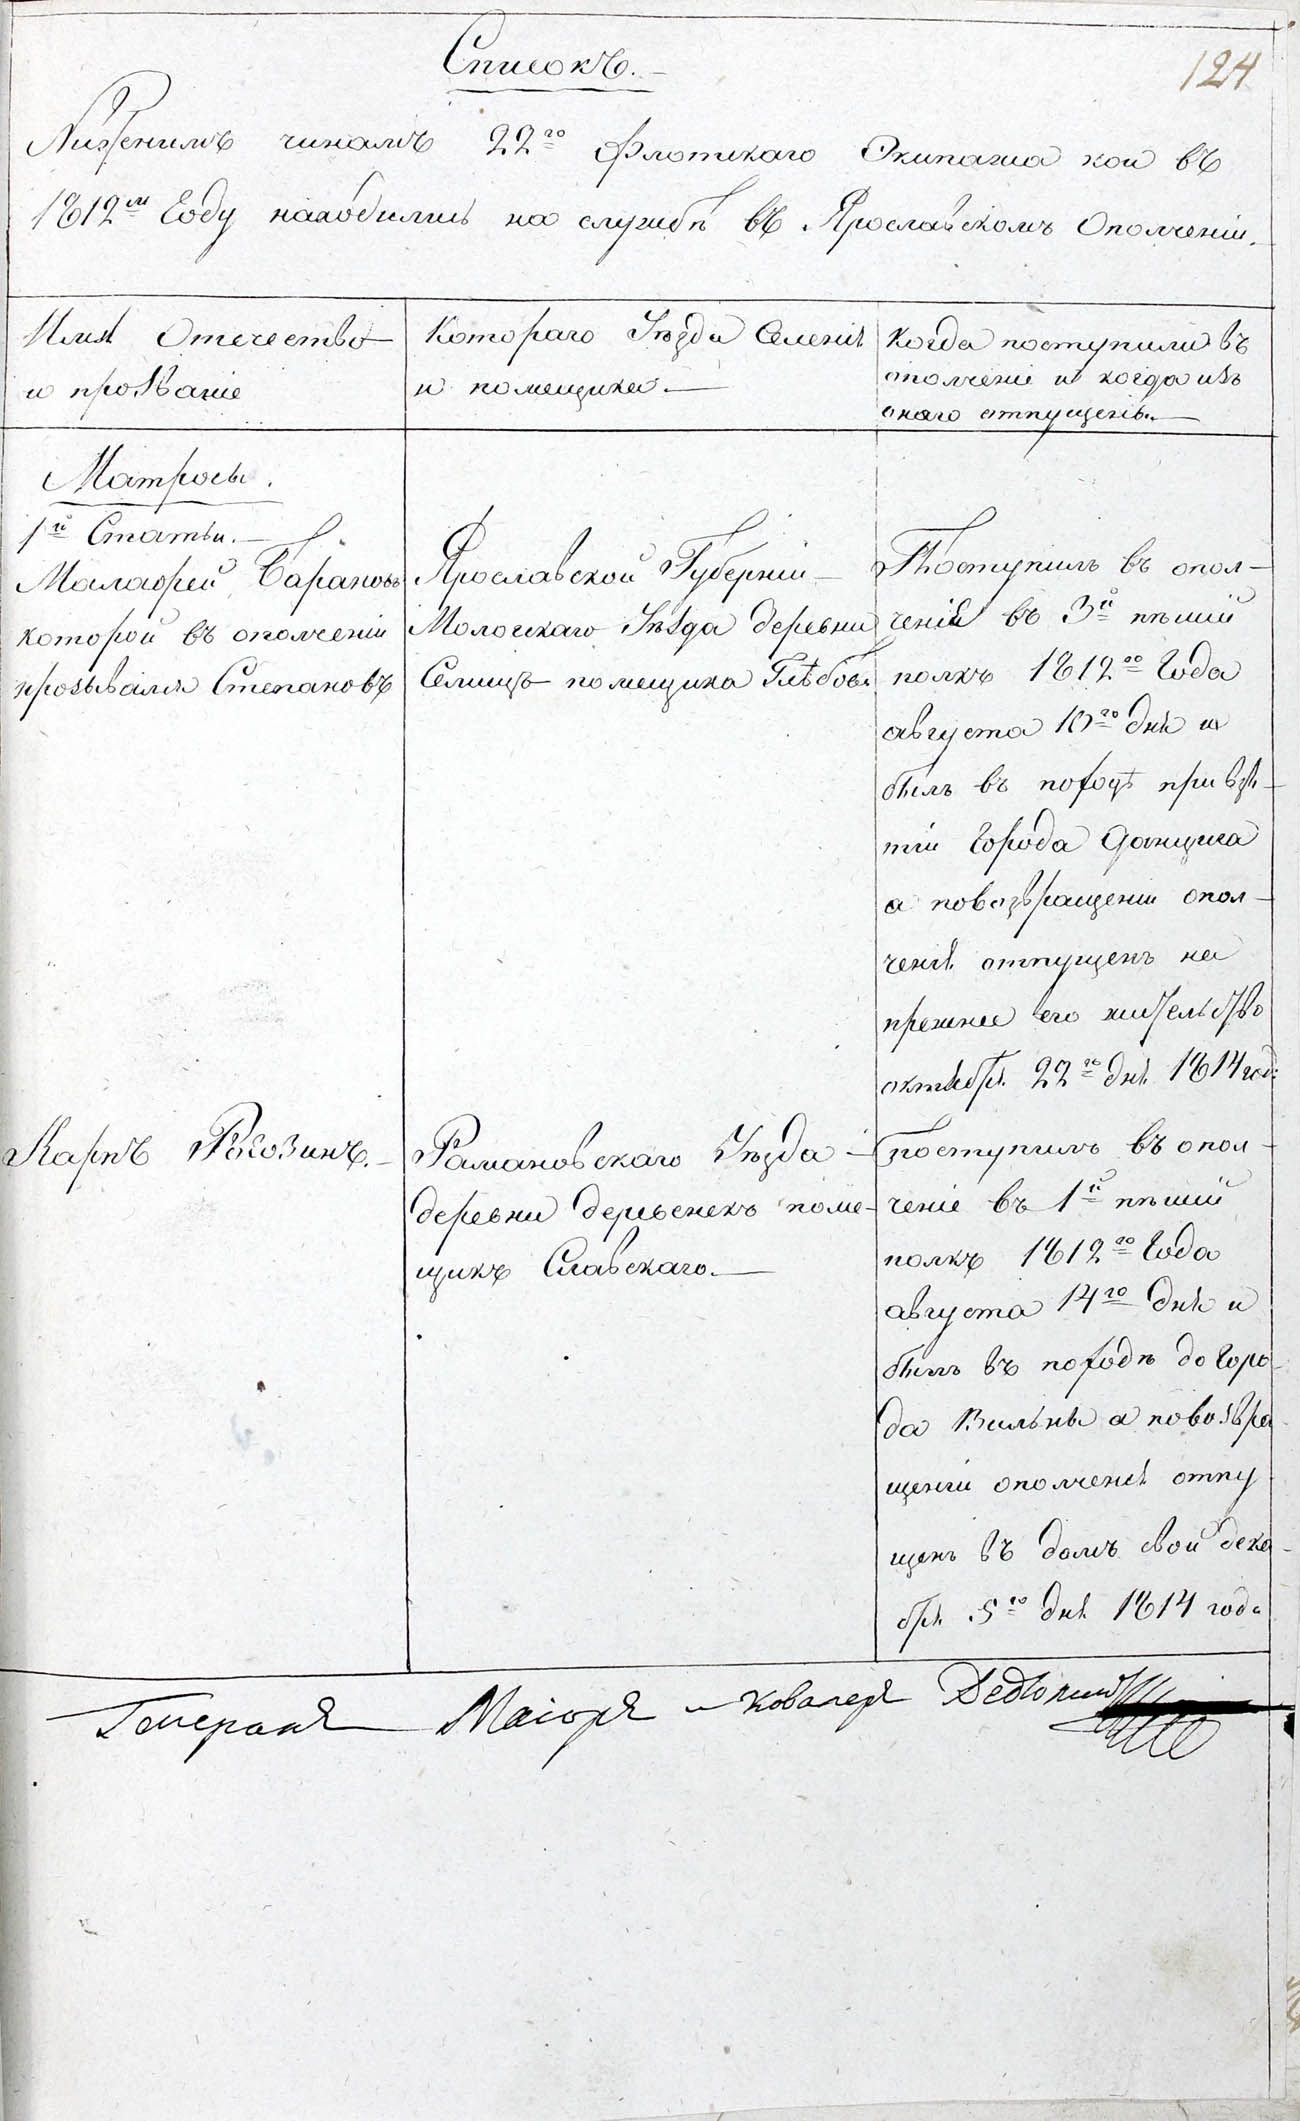 Списокъ.
124
Нижнимъ чинамъ 22го Флотскаго Экипажа кои въ
1812м Году находились на службѣ въ Ярославскомъ Ополченіи.
Имя Отечество
и прозваніе
Котораго Уѣзда Селенія
и помещика.
Когда поступили въ
ополченіе и когда изъ
онаго отпущены.
Матросы.
1й Статьи.
Малафей Барановъ
которой въ ополченіи
прозывался Степановъ
Ярославской Губерніи
Мологскаго Уѣзда деревни
Селищъ помещика Глѣбова
Поступилъ въ опол-
ченіе въ 3й пѣшій
полкъ 1812го Года
августа 10го дня и
былъ въ походѣ при взя-
тіи Города Данцига
а повозвращеніи опол-
ченія отпущенъ на
прежнее его жительство
октября 22го дня 1814 год:
Карпъ Рогозинъ.
Рамановскаго Уѣзда
деревни деревенекъ поме-
щикъ Славскаго.
поступилъ въ опол-
ченіе въ 1й пѣшій
полкъ 1812го Года
августа 14го дня и
былъ въ походѣ до Горо-
да Вильны а повозвра-
щеніи ополченія отпу
щенъ въ домъ свой дека-
бря 5го дня 1814 года
Генералъ Маіоръ и кавалеръ